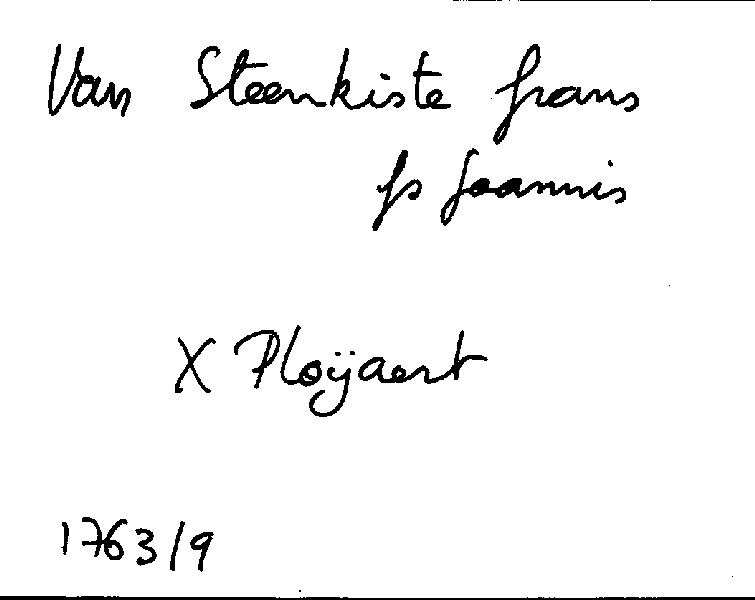 Van Steenkiste frans
fs Joannis
X Ploÿaert
1763/9